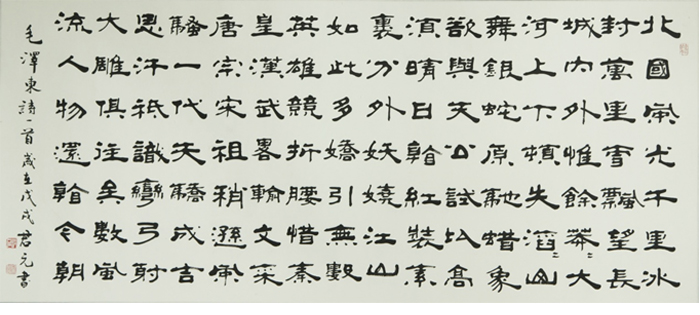 北國風光千里冰
封萬里雪飄望長
城內外惟餘莽〻大
河上下頓失滔〻山
舞銀蛇原馳蜡象
欲與天公試比高
須晴日看紅裝素
裹分外妖嬈江山
如此多嬌引無數
英雄競折腰惜秦
皇漢武畧輸文采
唐宗宋祖稍遜風
騷一代天驕成吉
思汗祇識彎弓射
大雕俱往矣數風
流人物還看今朝
毛澤東詩一首歲在戊戌君元書